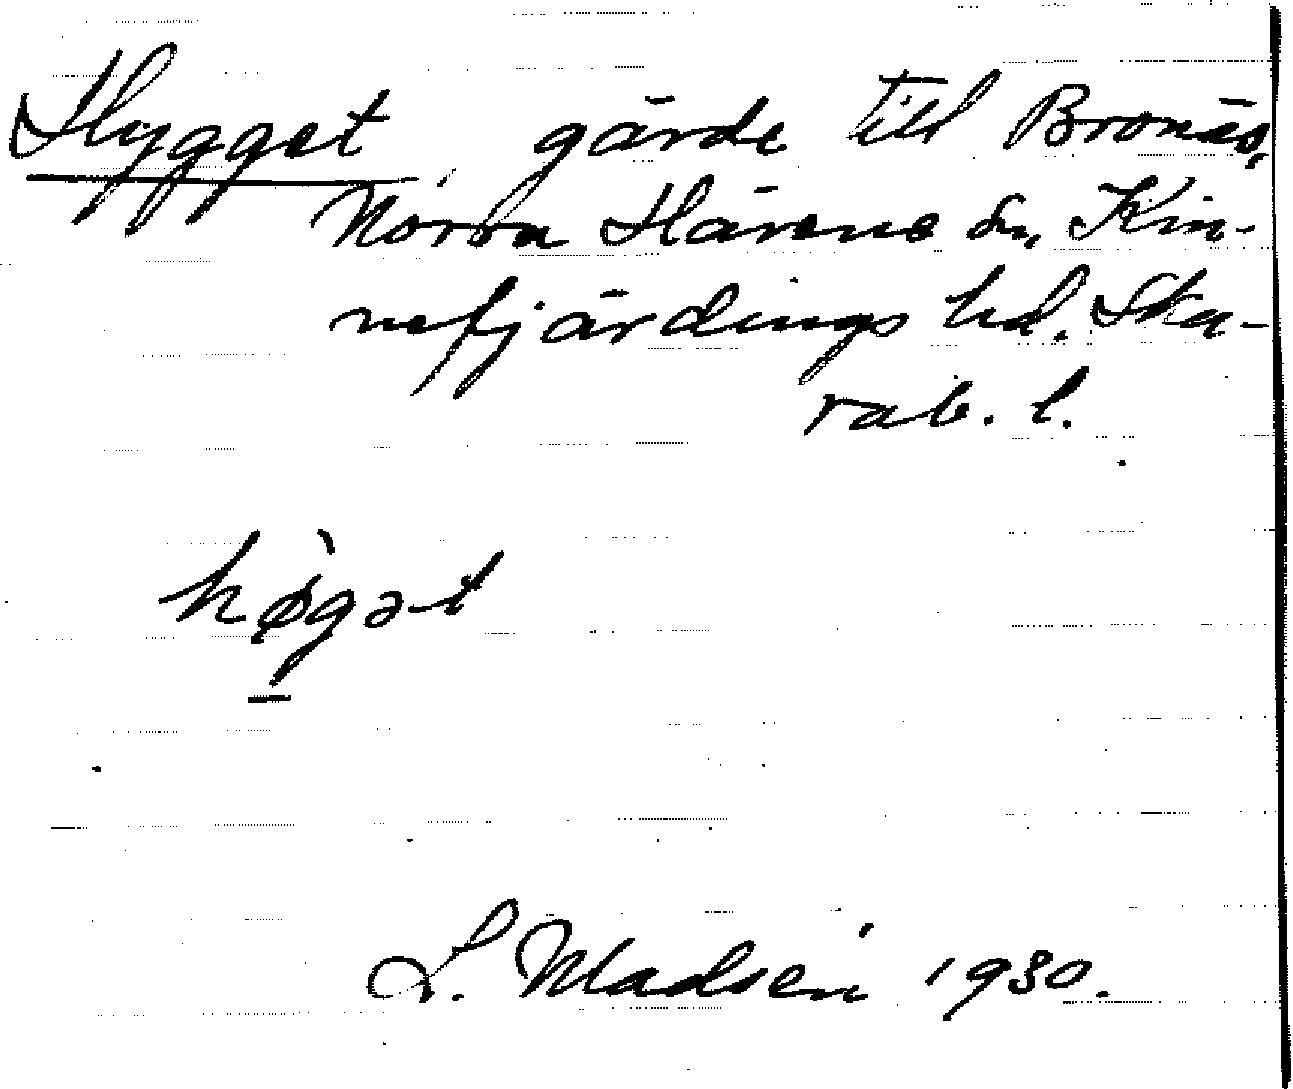 Hygget, gärde till Bronäs,
Norra Härene sn, Kin-
nefjärdings hd. Ska-
rab. l.
hø̀gət
L. Madsén 1930.